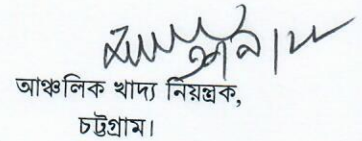 আঞ্চলিক খাদ্য নিয়ন্ত্রক,
চট্টগ্রাম।